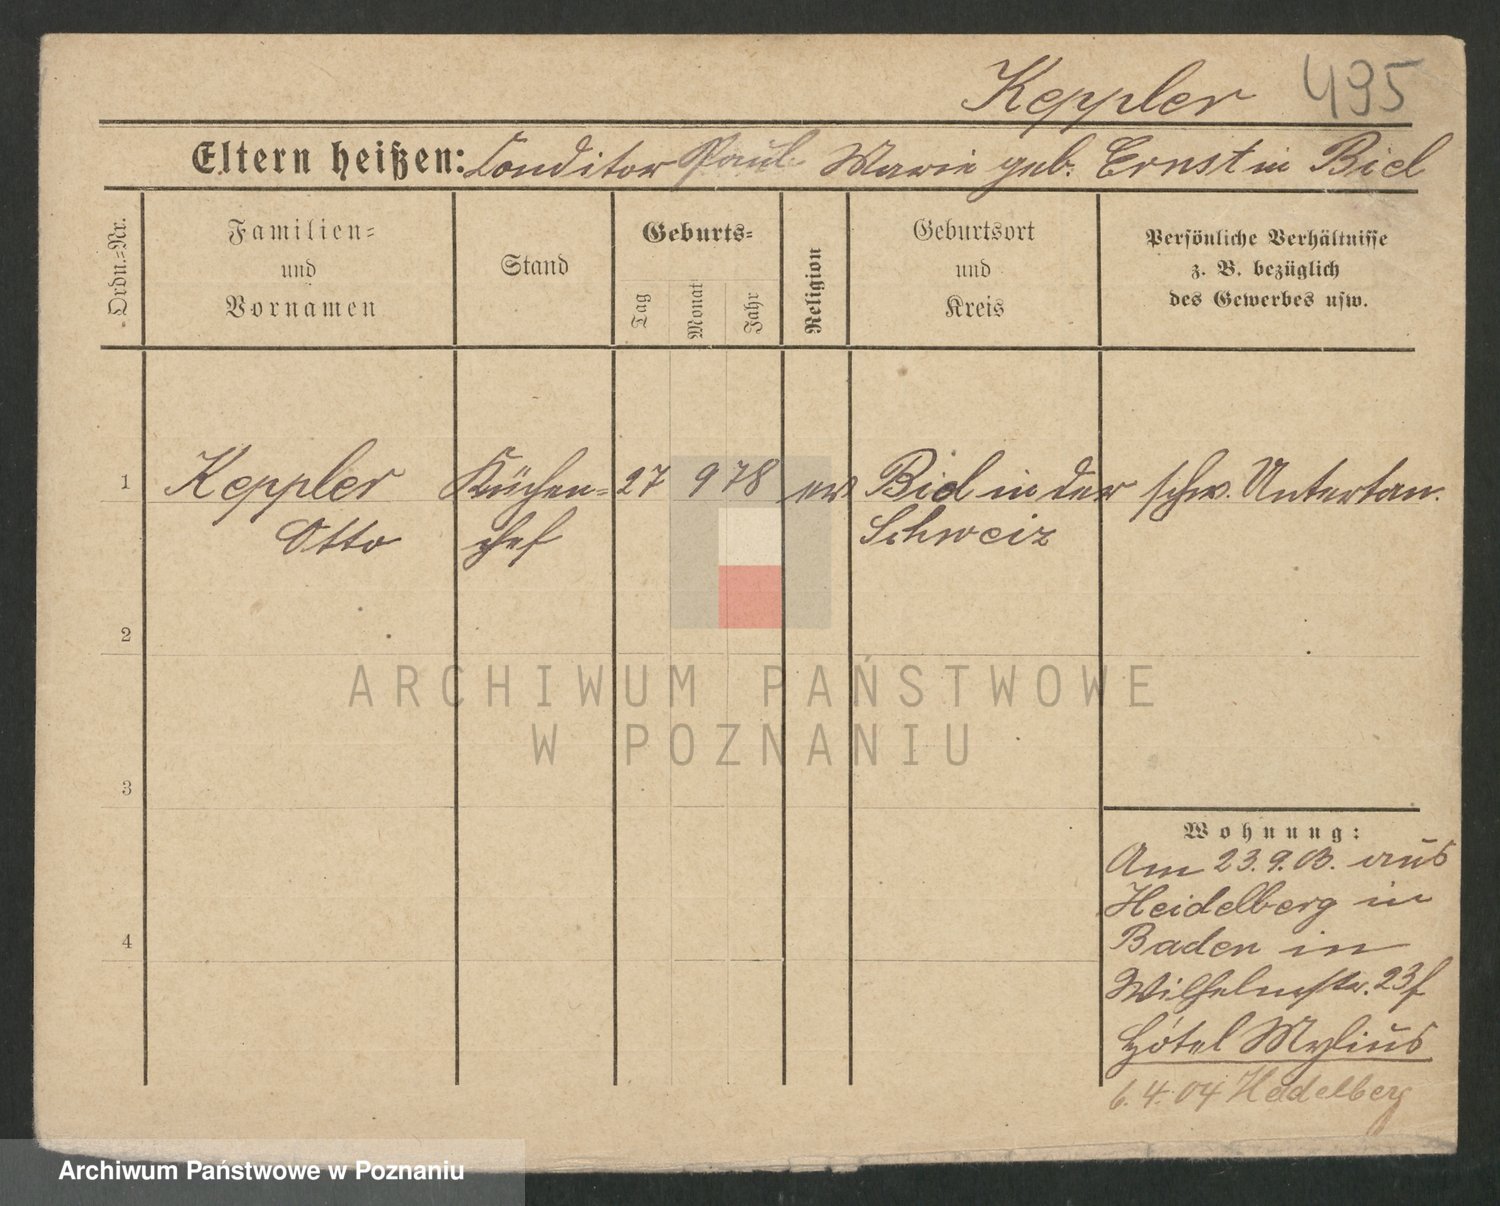 Keppler 495
Eltern heißen: Conditor Paul Marie geb. Ernst in Biel
Ordn.-Nr.
Familien-
und
Vornamen
Stand
Geburts-
Tag
Monat
Jahr
Religion
Geburtsort
und
Kreis
Persönliche Verhältnisse
z. B. bezüglich
des Gewerbes usw.
1 Keppler Küchen- 27 9 78 ev Biel in der schw. Untertan.
Otto chef Schweiz
2
ARCHIWUM PAŃSTWOWE
W POZNANIU
3
Wohnung:
Am 23.9.03. aus
Heidelberg in
4 Baden in
Wilhelmstr. 23f
Hôtel Mylius
6.4.04 Heidelberg
Archiwum Państwowe w Poznaniu